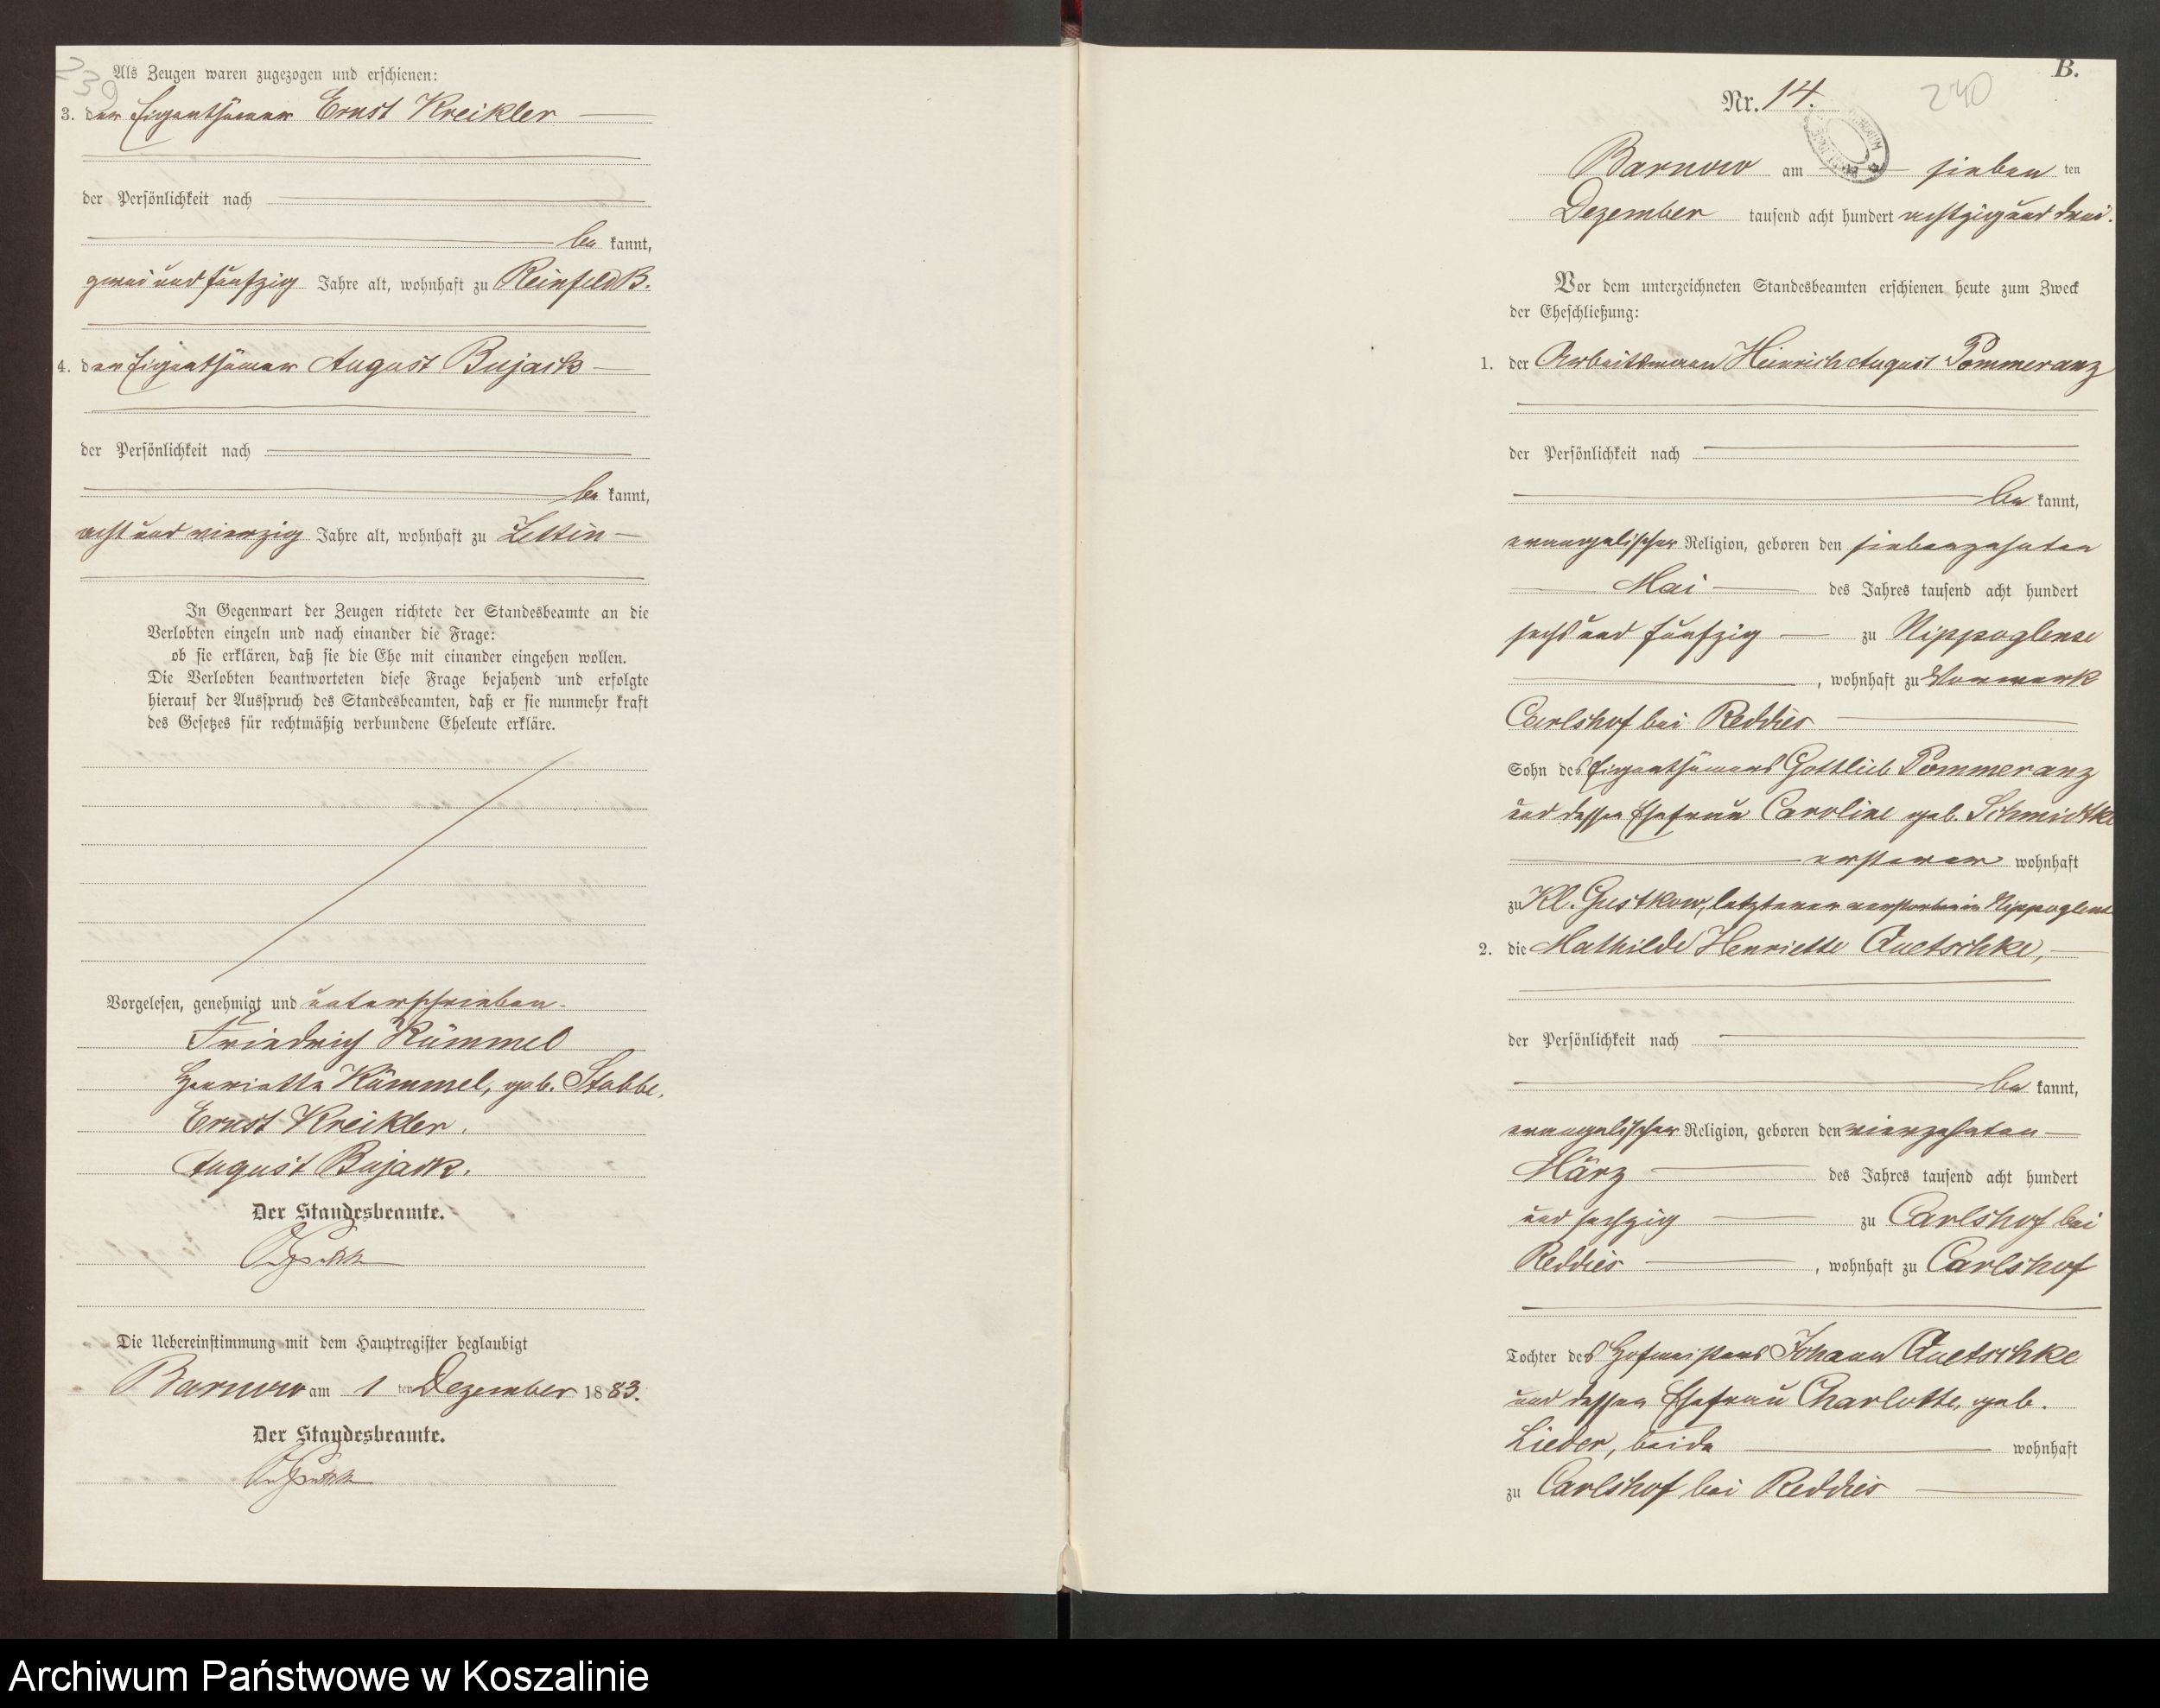 239
Als Zeugen waren zugezogen und erschienen:
3. der Eigenthümer Ernst Kreikler
der Persönlichkeit nach
be kannt,
zwei und fünfzig Jahre alt, wohnhaft zu Reinfeld B.
4. der Eigenthümer August Bujack
der Persönlichkeit nach
be kannt,
acht und vierzig Jahre alt, wohnhaft zu Lettin
In Gegenwart der Zeugen richtete der Standesbeamte an die
Verlobten einzeln und nach einander die Frage:
ob sie erklären, daß sie die Ehe mit einander eingehen wollen.
Die Verlobten beantworteten diese Frage bejahend und erfolgte
hierauf der Ausspruch des Standesbeamten, daß er sie nunmehr kraft
des Gesetzes für rechtmäßig verbundene Eheleute erkläre.
Vorgelesen, genehmigt und unterschrieben.
Friedrich Kümmel
Henriette Kümmel, geb. Stubbe.
Ernst Kreikler.
August Bujack.
Der Standesbeamte.
Die Uebereinstimmung mit dem Hauptregister beglaubigt
Barnow am 1 ten Dezember 1883.
Der Standesbeamte.
B.
Nr. 14.
240
Barnow am sieben ten
Dezember tausend acht hundert achtzig und drei.
Vor dem unterzeichneten Standesbeamten erschienen heute zum Zweck
der Eheschließung:
1. der Arbeitsmann Heinrich August Pommeranz
der Persönlichkeit nach
be kannt,
evangelischer Religion, geboren den siebenzehnten
Mai des Jahres tausend acht hundert
sechs und fünfzig zu Nippoglense
, wohnhaft zu Vorwerk
Carlshof bei Reddies
Sohn des Eigenthümers Gottlieb Pommeranz
und dessen Ehefrau Caroline geb. Schmidtke
ersterer wohnhaft
zu Kl. Gustkow, letztere verstorben in Nippoglense
2. die Mathilde Henriette Quetschke,
der Persönlichkeit nach
be kannt,
evangelischer Religion, geboren den vierzehnten
März des Jahres tausend acht hundert
und sechzig zu Carlshof bei
Reddies , wohnhaft zu Carlshof
Tochter des Hofmeisters Johann Quetschke
und dessen Ehefrau Charlotte, geb.
Lieder, beide wohnhaft
zu Carlshof bei Reddies
Archiwum Państwowe w Koszalinie